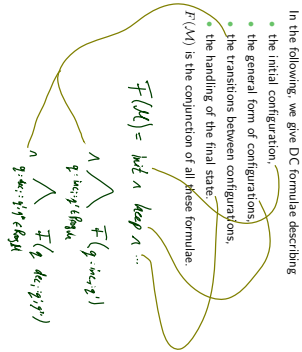 In the following, we give DC formulae describing
• the initial configuration,
• the general form of configurations,
• the transitions between configurations,
• the handling of the final state.
F(M) is the conjunction of all these formulae.
F(M) = init ∧ keep ∧ ...
∧ F(q : inc₁ : q')
q : inc₁ : q' ∈ Prog M
∧ F(q : dec₁ : q', q'')
q : dec₁ : q', q'' ∈ Prog M